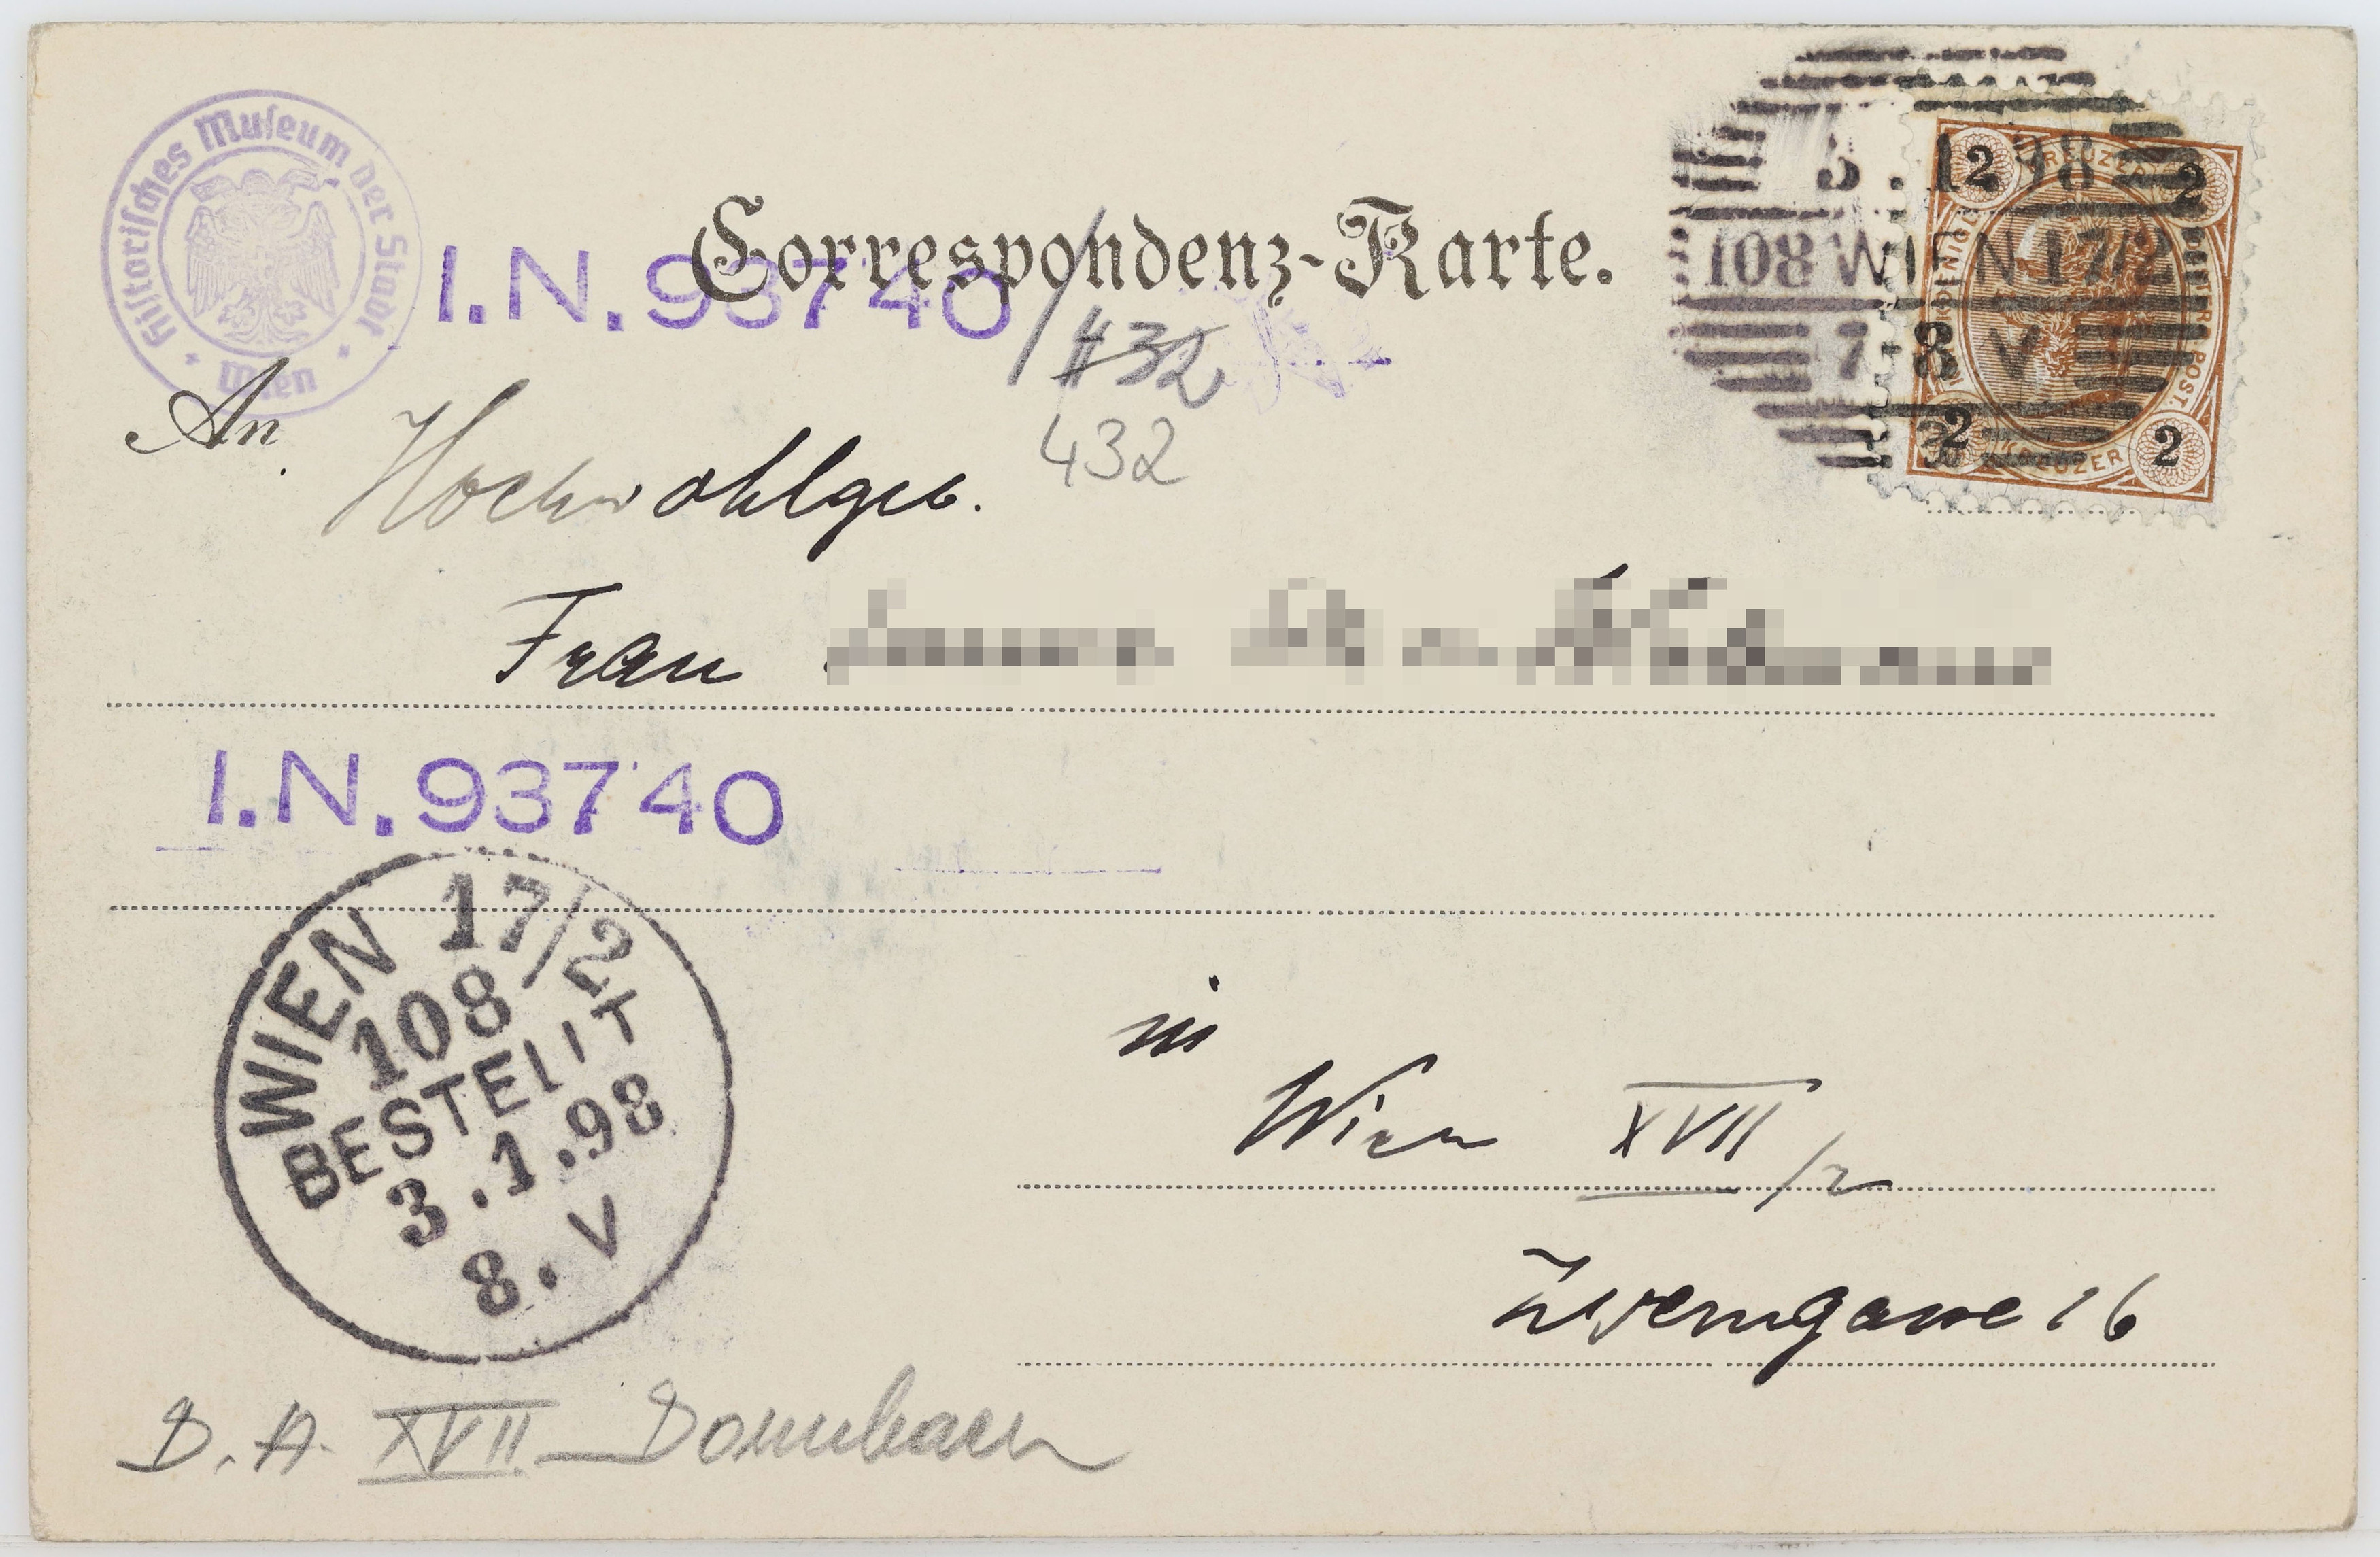 Historisches Museum der Stadt
Wien
Correspondenz-Karte.
I.N. 93740 / 432
432
3.1.98
108 WIEN 17/2
7-8 V
2 KREUZER 2
2 KREUZER 2
An
Hochwohlgeb.
Frau
I.N. 93740
WIEN 17/2
108
BESTELLT
3.1.98
8. V
in
Wien XVII/2
16
D. A. XVII Dornbach